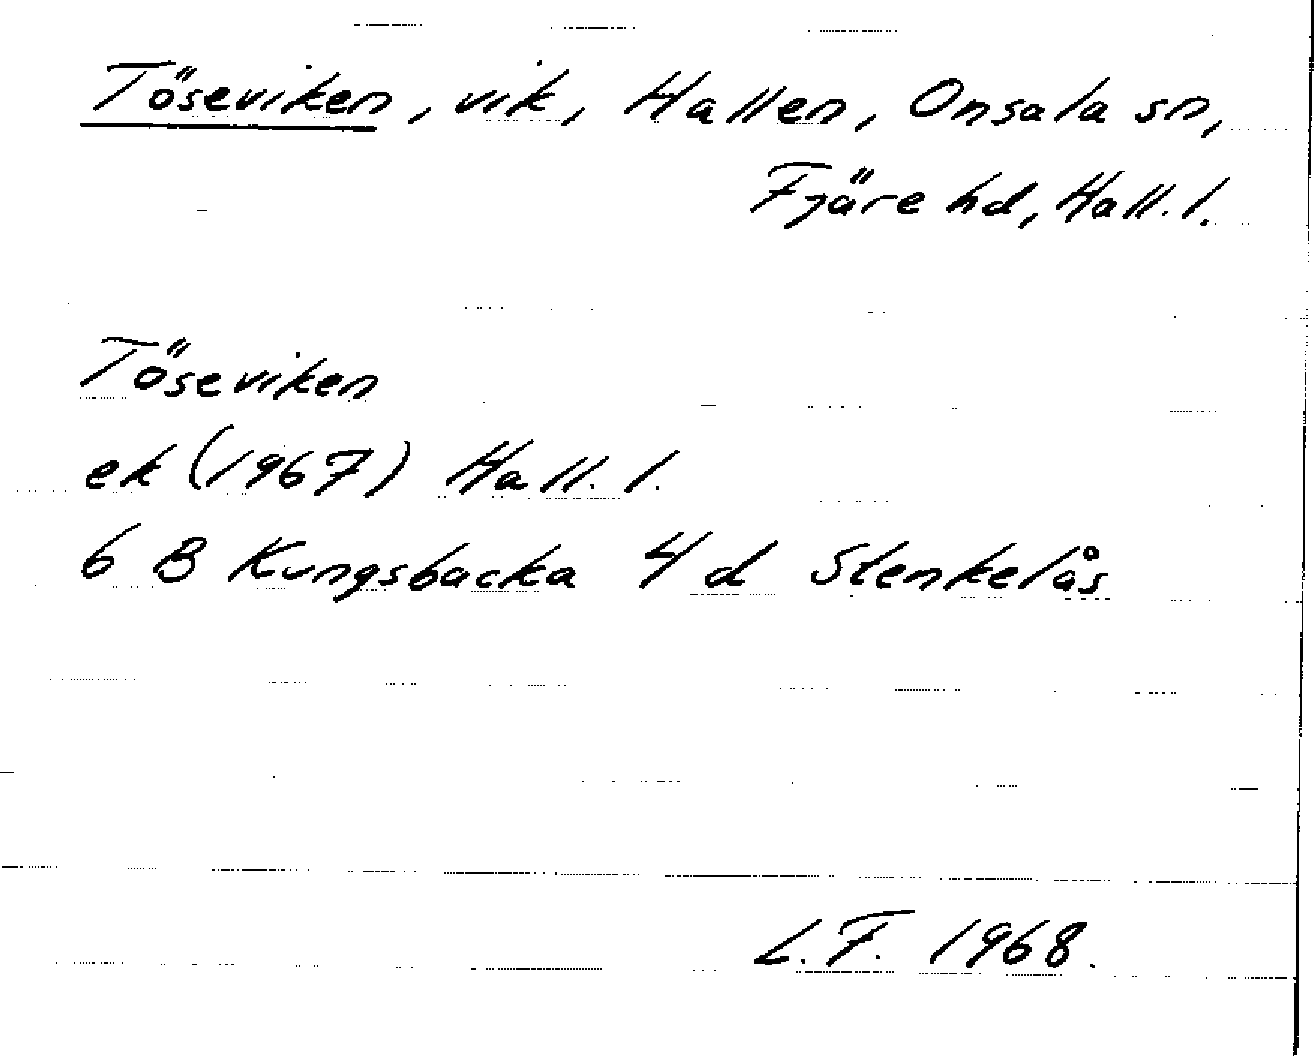 Töseviken, vik, Hallen, Onsala sn,
Fjäre hd, Hall. l.
Töseviken
ek (1967) Hall. l.
6 B Kungsbacka 4 d Stenkelås
L.F. 1968.